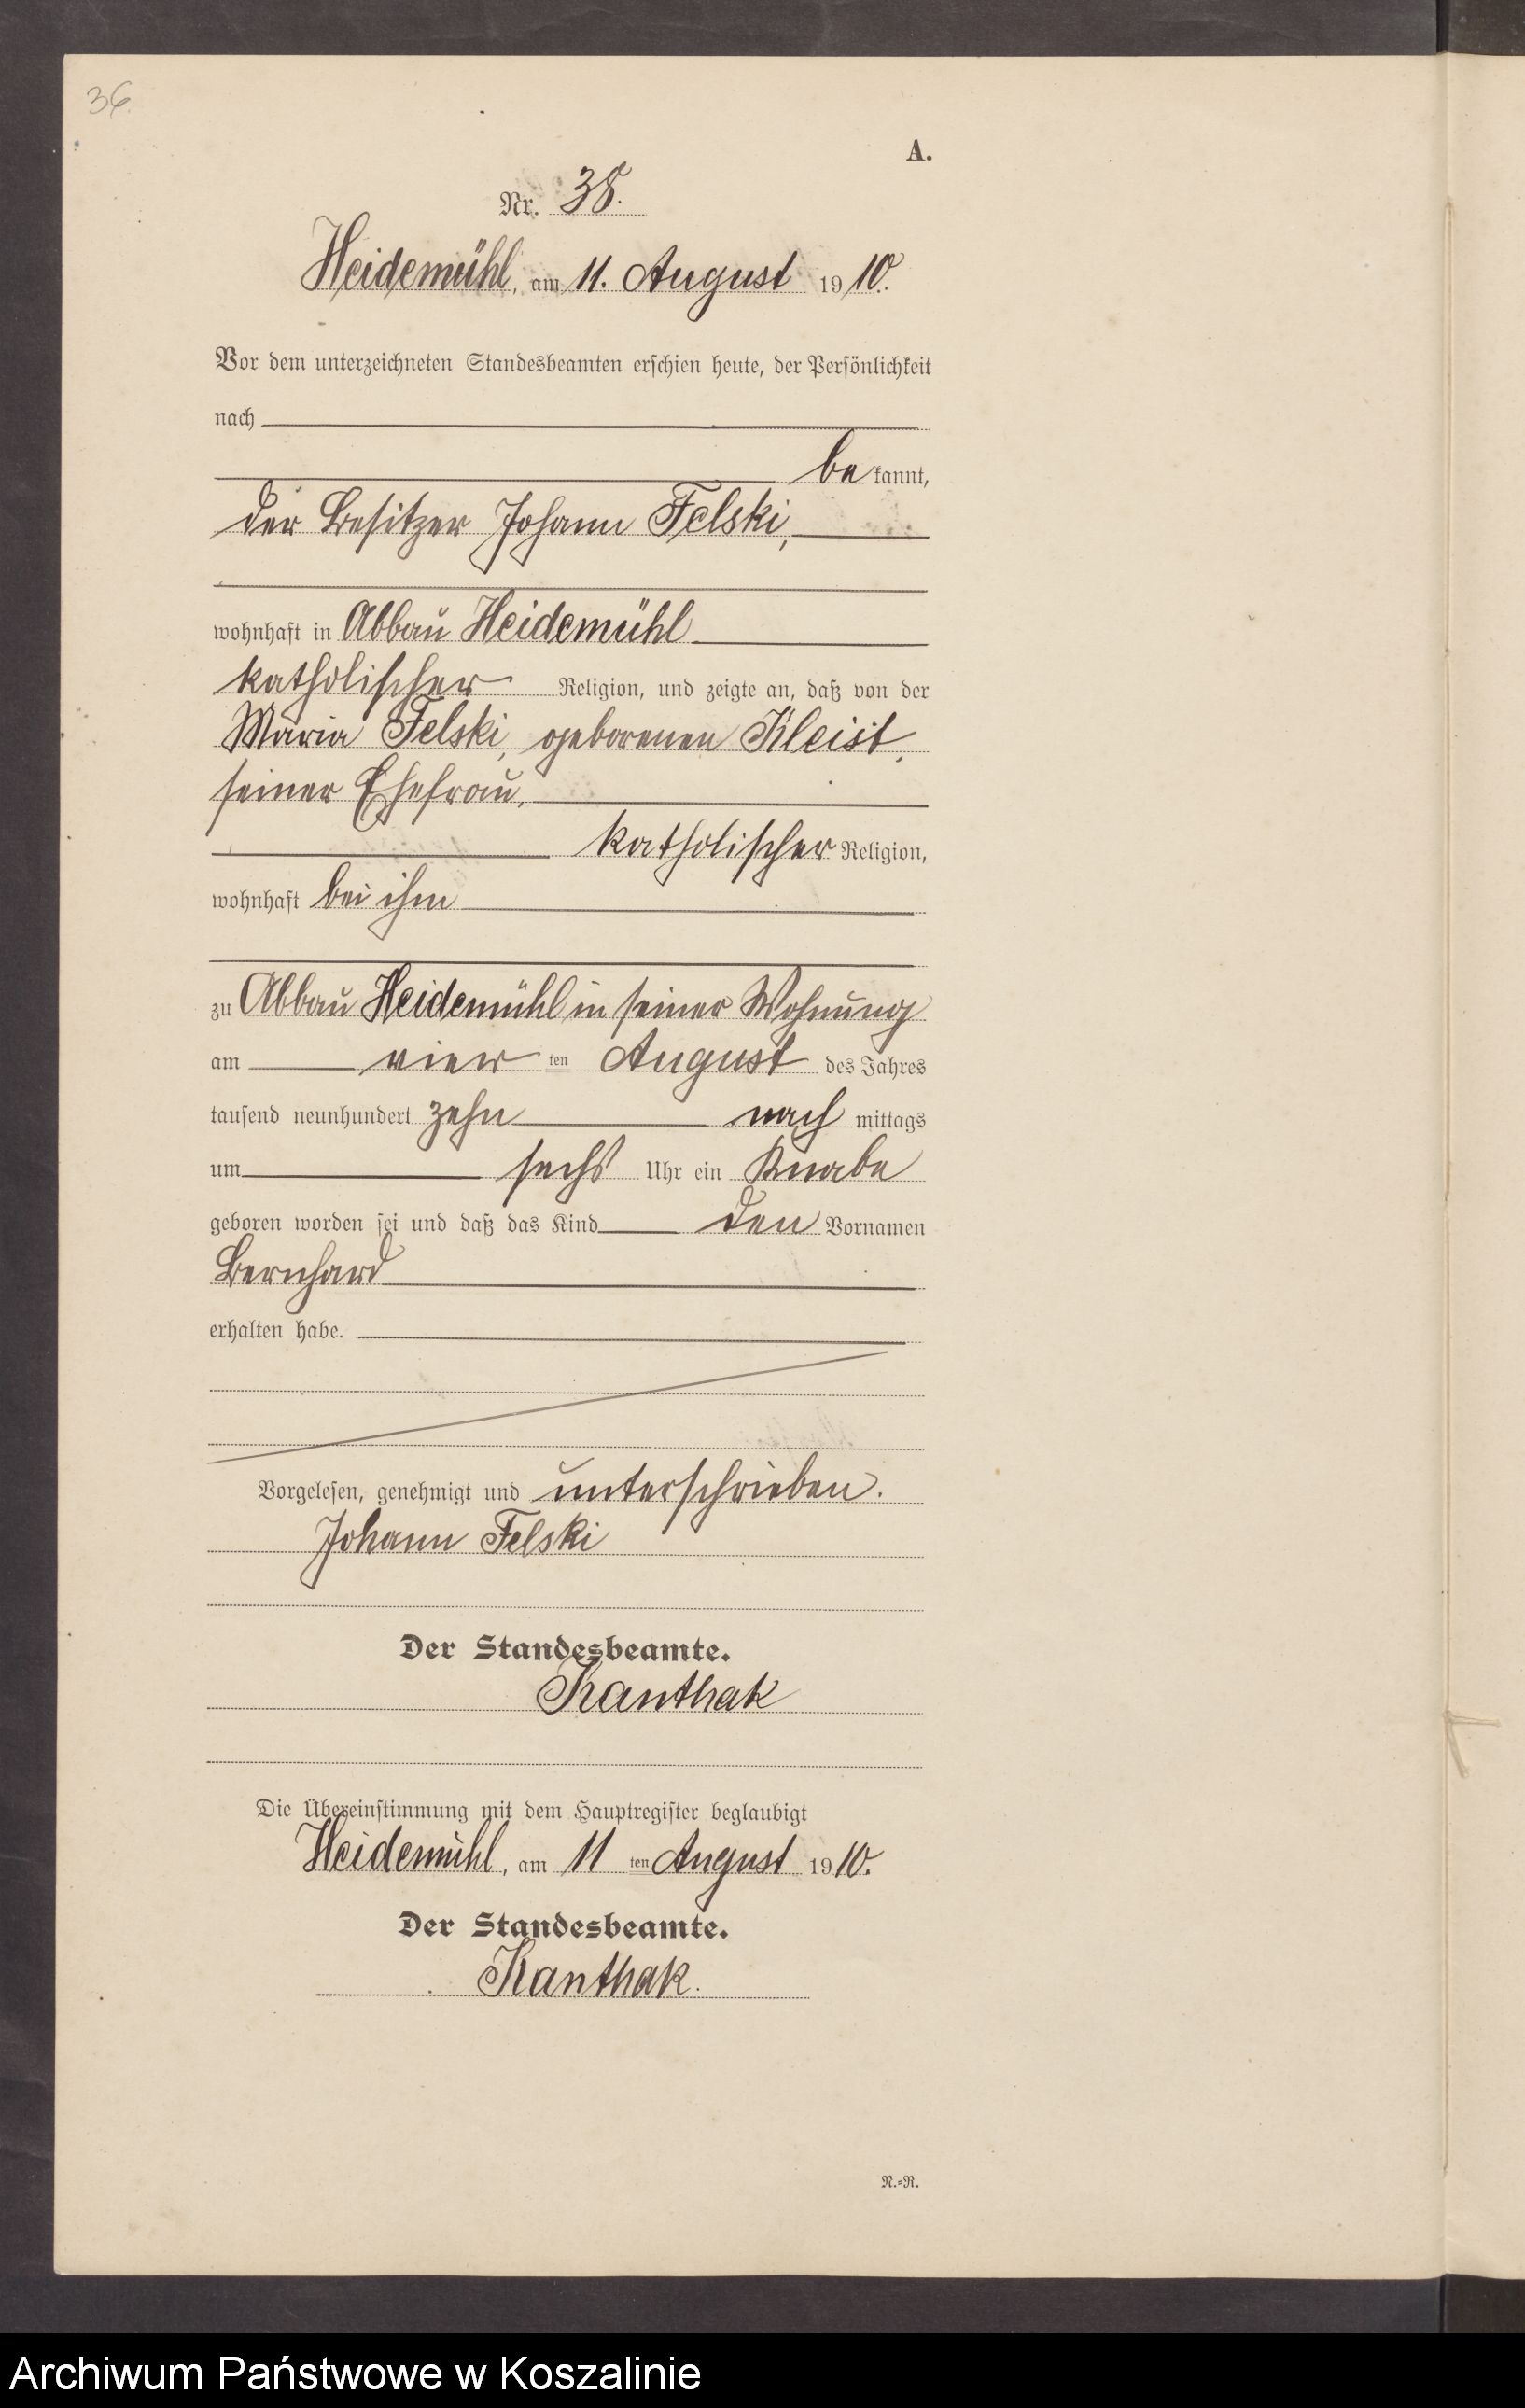 36.
A.
Nr. 38.
Heidemühl, am 11. August 1910.
Vor dem unterzeichneten Standesbeamten erschien heute, der Persönlichkeit
nach
be kannt,
der Besitzer Johann Felski,
wohnhaft in Abbau Heidemühl
katholischer Religion, und zeigte an, daß von der
Maria Felski, geborenen Kleist,
seiner Ehefrau,
katholischer Religion,
wohnhaft bei ihm
zu Abbau Heidemühl in seiner Wohnung
am vier ten August des Jahres
tausend neunhundert zehn nach mittags
um sechs Uhr ein Knabe
geboren worden sei und daß das Kind den Vornamen
Bernhard
erhalten habe.
Vorgelesen, genehmigt und unterschrieben.
Johann Felski
Der Standesbeamte.
Kanthak
Die Übereinstimmung mit dem Hauptregister beglaubigt
Heidemühl, am 11 ten August 1910.
Der Standesbeamte.
Kanthak.
N.=R.
Archiwum Państwowe w Koszalinie